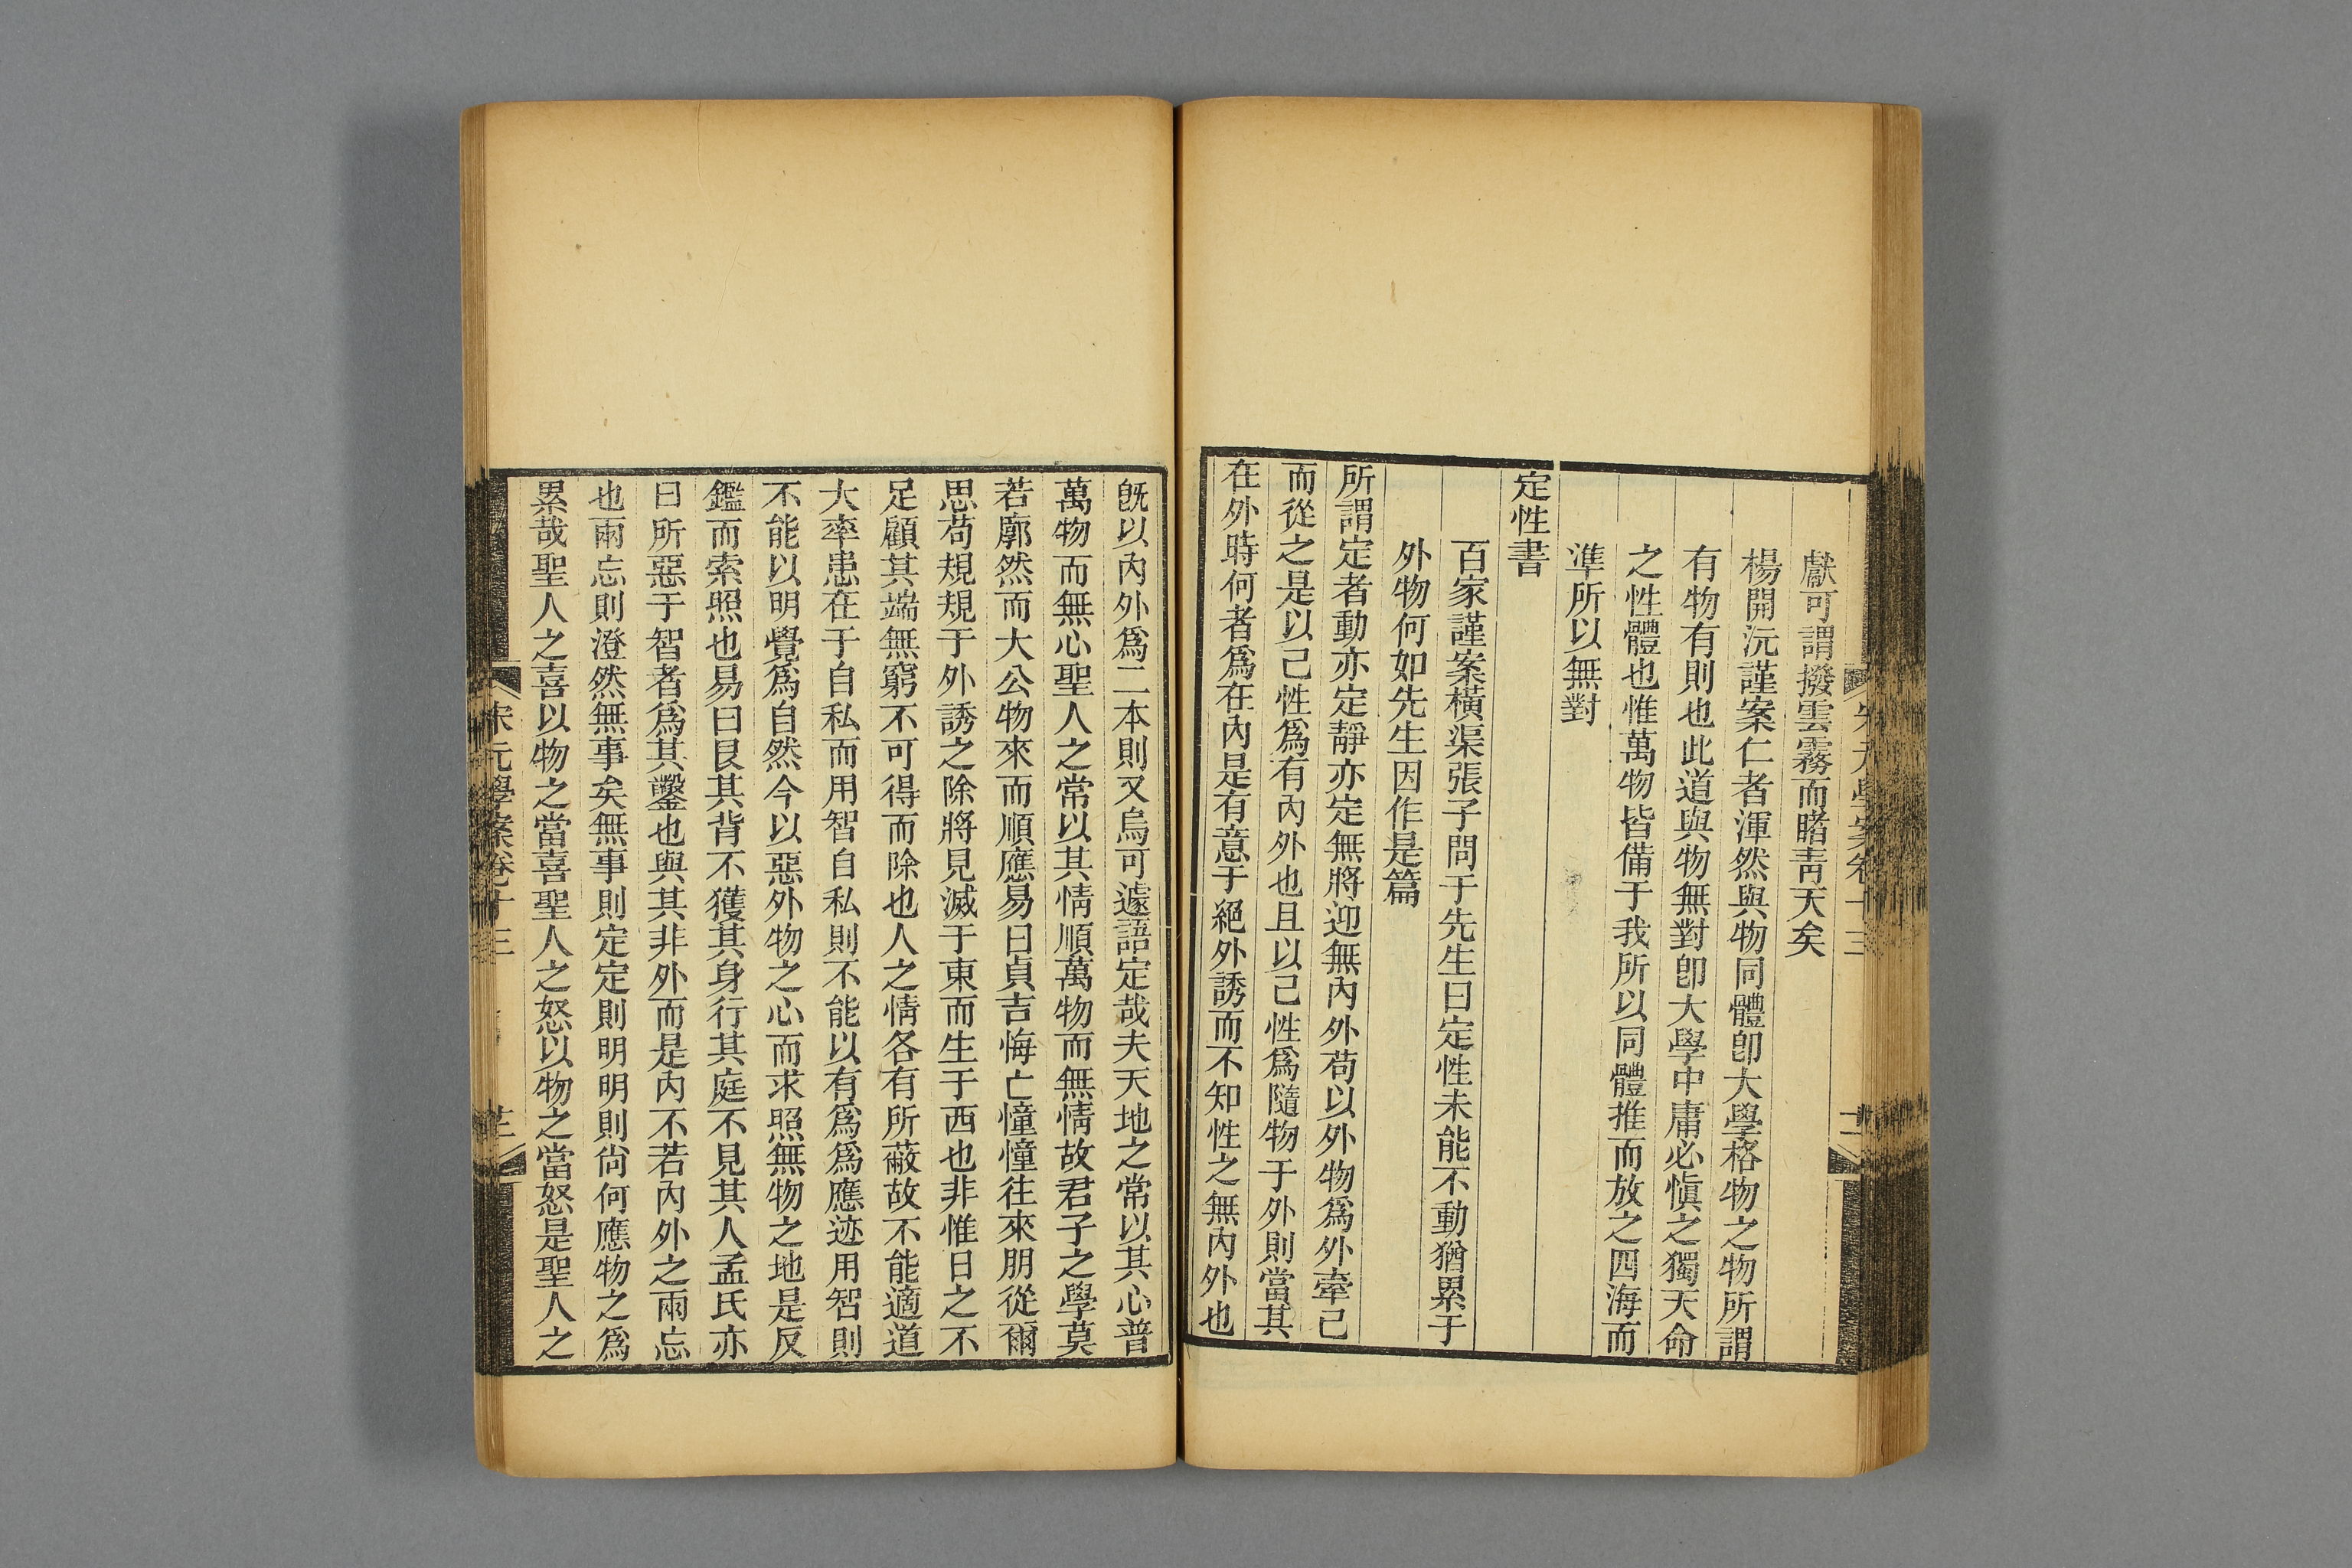 獻可謂撥雲霧而睹靑天矣
楊開沅謹案仁者渾然與物同體卽大學格物之物所謂
有物有則也此道與物無對卽大學中庸必愼之獨天命
之性體也惟萬物皆備于我所以同體推而放之四海而
準所以無對
定性書
百家謹案橫渠張子問于先生曰定性未能不動猶累于
外物何如先生因作是篇
所謂定者動亦定靜亦定無將迎無內外苟以外物爲外牽己
而從之是以己性爲有內外也且以己性爲隨物于外則當其
在外時何者爲在內是有意于絕外誘而不知性之無內外也
旣以內外爲二本則又烏可遽語定哉夫天地之常以其心普
萬物而無心聖人之常以其情順萬物而無情故君子之學莫
若廓然而大公物來而順應易曰貞吉悔亡憧憧往來朋從爾
思苟規規于外誘之除將見滅于東而生于西也非惟日之不
足顧其端無窮不可得而除也人之情各有所蔽故不能適道
大率患在于自私而用智自私則不能以有爲爲應迹用智則
不能以明覺爲自然今以惡外物之心而求照無物之地是反
鑑而索照也易曰艮其背不獲其身行其庭不見其人孟氏亦
曰所惡于智者爲其鑿也與其非外而是內不若內外之兩忘
也兩忘則澄然無事矣無事則定定則明明則尙何應物之爲
累哉聖人之喜以物之當喜聖人之怒以物之當怒是聖人之
宋元學案卷十三